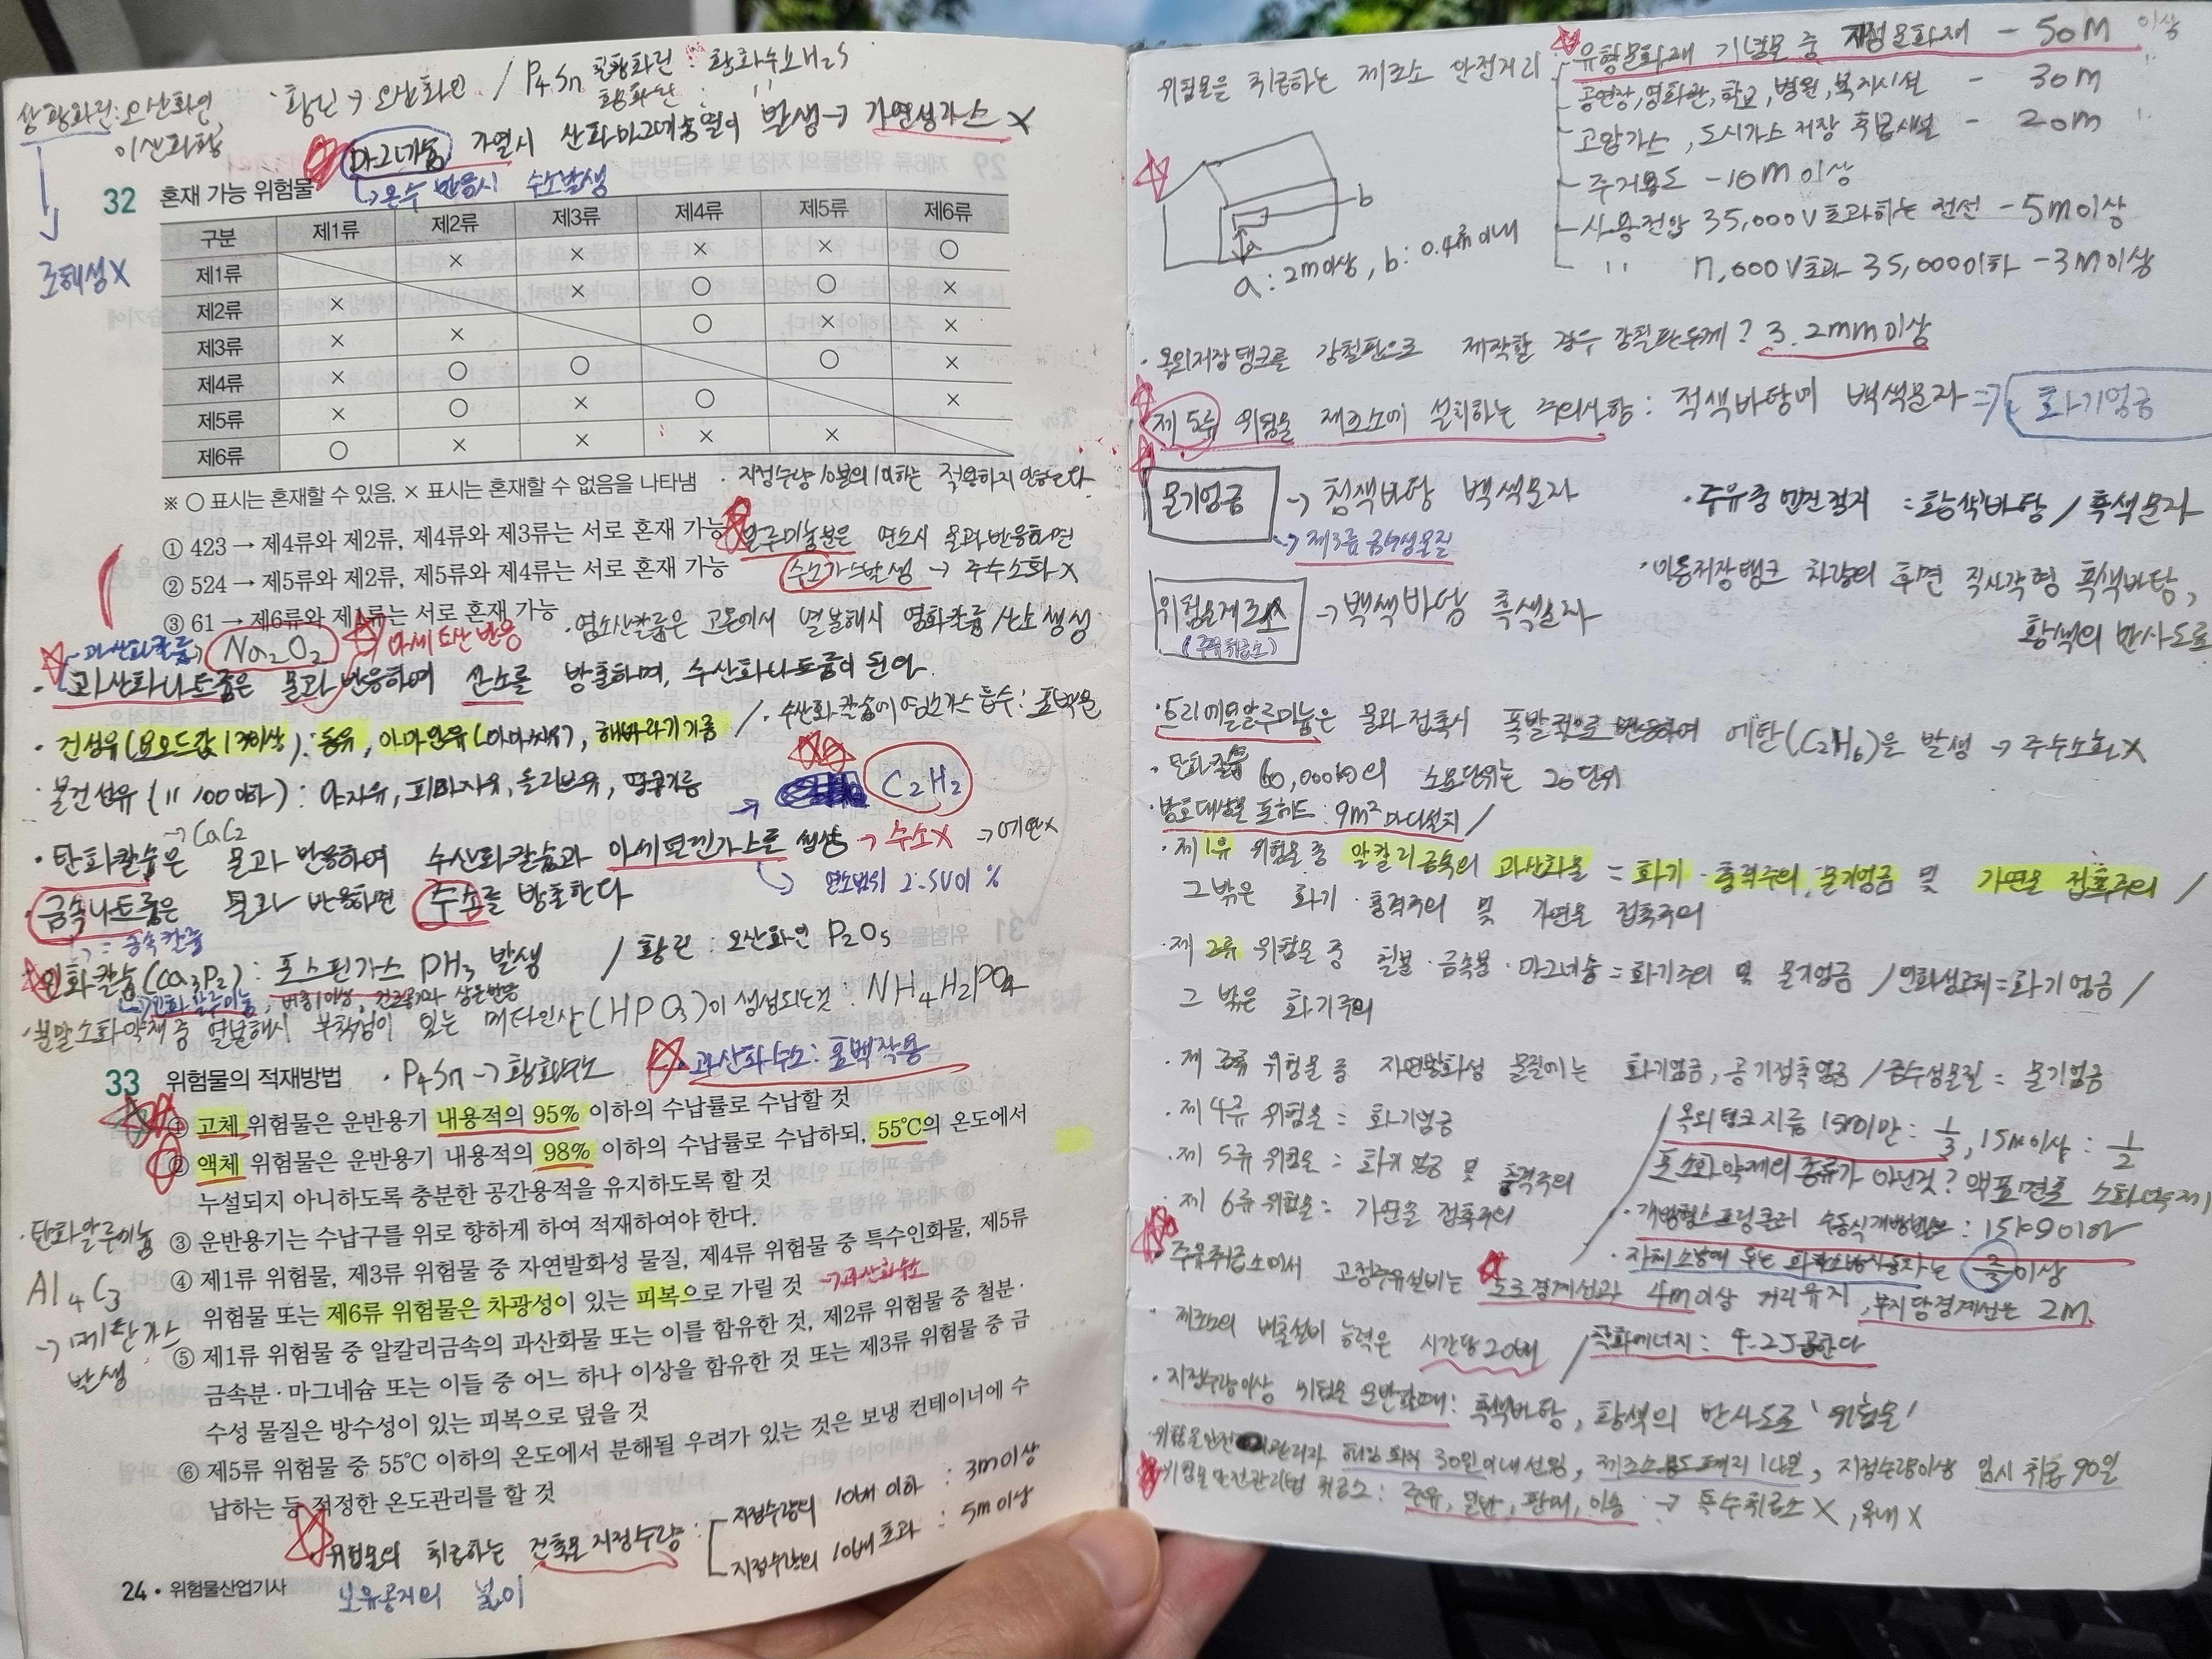 삼황화린:오산화인,
이산화황
조해성X
·황린→오산화인 / P4Sn 칠황화린 : 황화수소H2S
황화린 : 〃
마그네슘 가열시 산화마그네슘열이 발생→가연성가스 X
↳온수 반응시 수소발생
32 혼재 가능 위험물
구분 제1류 제2류 제3류 제4류 제5류 제6류
제1류 × × × × ○
제2류 × × ○ ○ ×
제3류 × × ○ × ×
제4류 × ○ ○ ○ ×
제5류 × ○ × ○ ×
제6류 ○ × × × ×
※ ○ 표시는 혼재할 수 있음, × 표시는 혼재할 수 없음을 나타냄
·지정수량 10분의 1이하는 적용하지 안한다
① 423 → 제4류와 제2류, 제4류와 제3류는 서로 혼재 가능
② 524 → 제5류와 제2류, 제5류와 제4류는 서로 혼재 가능
③ 61 → 제6류와 제1류는 서로 혼재 가능
알루미늄분은 연소시 물과반응하면
수소가스발생 → 주수소화X
·염소산칼륨은 고온에서 열분해시 염화칼륨/산소 생성
과산화칼륨 Na2O2 → 아세트산 반응
·과산화나트륨은 물과 반응하여 산소를 방출하며, 수산화나트륨이 된다.
·건성유(요오드값 130이상): 동유, 아마인유(아마씨유), 해바라기기름 / ·수산화칼슘에 염소가스 흡수: 표백분
·불건성유(〃 100이하): 야자유, 피마자유, 올리브유, 땅콩기름
→ C2H2
→CaC2
·탄화칼슘은 물과 반응하여 수산화칼슘과 아세틸렌가스를 생성 → 수소X →에탄X
↳ 연소범위 2.5V이 %
·금속나트륨은 물과 반응하면 수소를 방출한다
↳ = 금속칼륨
인화칼슘(Ca3P2): 포스핀가스 PH3 발생 / 황린: 오산화인 P2O5
↳인화알루미늄,
·분말소화약제 중 열분해시 부착성이 있는 메타인산(HPO3)이 생성되는것: NH4H2PO4
33 위험물의 적재방법
·P4Sn→황화수소
·과산화수소: 표백작용
① 고체 위험물은 운반용기 내용적의 95% 이하의 수납률로 수납할 것
② 액체 위험물은 운반용기 내용적의 98% 이하의 수납률로 수납하되, 55℃의 온도에서
누설되지 아니하도록 충분한 공간용적을 유지하도록 할 것
③ 운반용기는 수납구를 위로 향하게 하여 적재하여야 한다.
④ 제1류 위험물, 제3류 위험물 중 자연발화성 물질, 제4류 위험물 중 특수인화물, 제5류
위험물 또는 제6류 위험물은 차광성이 있는 피복으로 가릴 것 →과산화수소
⑤ 제1류 위험물 중 알칼리금속의 과산화물 또는 이를 함유한 것, 제2류 위험물 중 철분·
금속분·마그네슘 또는 이들 중 어느 하나 이상을 함유한 것 또는 제3류 위험물 중 금
수성 물질은 방수성이 있는 피복으로 덮을 것
⑥ 제5류 위험물 중 55℃ 이하의 온도에서 분해될 우려가 있는 것은 보냉 컨테이너에 수
납하는 등 적정한 온도관리를 할 것
·탄화알루미늄
Al4C3
→메탄가스
발생
위험물의 취급하는 건축물 지정수량 :
지정수량의 10배 이하 : 3m이상
지정수량의 10배 초과 : 5m이상
보유공지의 넓이
24 · 위험물산업기사
위험물을 취급하는 제조소 안전거리
유형문화재 기념물 중 지정문화재 - 50M 이상
공연장, 영화관, 학교, 병원, 복지시설 - 30M 〃
고압가스, 도시가스 저장 취급시설 - 20m 〃
주거용도 -10m이상
사용전압 35,000V초과하는 전선 -5m이상
〃 7,000V초과 35,000이하 -3M이상
b
a
a:2m이상, b: 0.4m이내
·옥외저장탱크를 강철판으로 제작할 경우 강철판두께? 3.2mm이상
제5류 위험물 제조소에 설치하는 주의사항: 적색바탕에 백색문자 ⇒ 화기엄금
물기엄금 → 청색바탕 백색문자
→ 제3류 금수성물질
·주유중엔진정지 =황색바탕/흑색문자
위험물제조소 →백색바탕 흑색문자
(주유취급소)
·이동저장탱크 차량의 후면 직사각형 흑색바탕,
황색의 반사도료
·트리에틸알루미늄은 물과접촉시 폭발적으로 반응하여 에탄(C2H6)을 발생 → 주수소화X
·탄화칼슘 60,000kg의 소요단위는 20단위
·방호대상물 포헤드: 9m²마다설치/
·제1류 위험물 중 알칼리금속의 과산화물 = 화기·충격주의, 물기엄금 및 가연물 접촉주의 /
그밖은 화기·충격주의 및 가연물 접촉주의
·제2류 위험물 중 철분·금속분·마그네슘=화기주의 및 물기엄금 /인화성고체=화기엄금/
그 밖은 화기주의
·제3류 위험물 중 자연발화성 물질에는 화기엄금, 공기접촉엄금/금수성물질=물기엄금
·제4류 위험물 = 화기엄금
·제5류 위험물 = 화기엄금 및 충격주의
·제6류위험물= 가연물 접촉주의
옥외탱크지름 15m미만: 1/3, 15m이상: 1/2
포소화약제의 종류가 아닌것? 액표면을 소화약제
·개방형스프링클러 수동식개방밸브 : 15kg이하
·자체소방에 두는 화학소방자동차는 이상
·주유취급소에서 고정주유설비는 도로경계선과 4m이상 거리유지, 부지담경계선은 2M.
·제조소의 배출설비 능력은 시간당20배 / 착화에너지: 4.2J곱한다
·지정수량이상 위험물 운반할때: 흑색바탕, 황색의 반사도료 '위험물'
·위험물안전관리자 해임 퇴직 30일이내선임, 제조소용도폐지 14일, 지정수량이상 임시 취급 90일
위험물안전관리법 취급소: 주유, 일반, 판매, 이송 → 특수취급소 X, 옥내 X